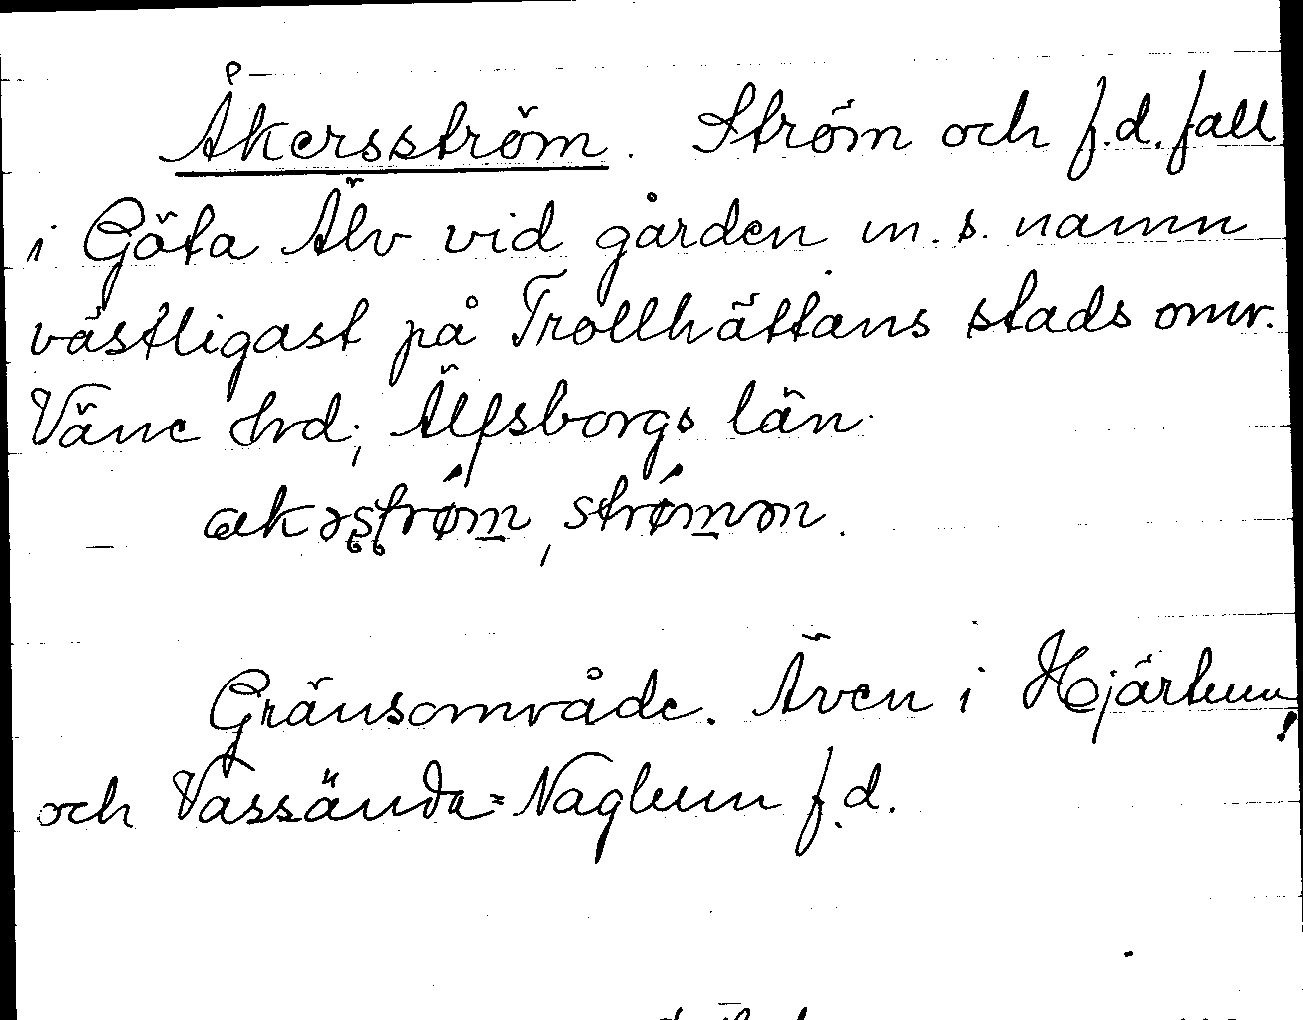 Åkersström. Ström och f.d. fall
i Göta Älv vid gården m. s. namn
västligast på Trollhättans stads omr.
Väne hrd, Älfsborgs län.
akəʂʈrø̀m, strø̀mən.
Gränsområde. Även i Hjärtum!
och Vassända=Naglum f.d.